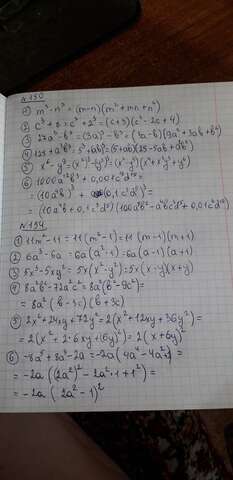 № 150
1) m³-n³=(m-n)(m²+mn+n²)
2) c³+8=c³+2³=(c+2)(c²-2c+4)
3) 27a³-b³=(3a)³-b³=(3a-b)(9a²+3ab+b²)
4) 125+a³b³=5³+(ab)³=(5+ab)(25-5ab+a²b²)
5) x⁶-y⁹=(x²)³-(y³)³=(x²-y³)(x⁴+x²y³+y⁶)
6) 1000a¹²b³+0,001c⁶d¹⁵=
=(10a⁴b)³+(0,1c²d⁵)³=
=(10a⁴b+0,1c²d⁵)(100a⁸b²-a⁴bc²d⁵+0,01c⁴d¹⁰)
№ 154
1) 11m²-11=11(m²-1)=11(m-1)(m+1)
2) 6a³-6a=6a(a²-1)=6a(a-1)(a+1)
3) 5x³-5xy²=5x(x²-y²)=5x(x-y)(x+y)
4) 8a²b²-72a²c²=8a²(b²-9c²)=
=8a²(b-3c)(b+3c)
5) 2x²+24xy+72y²=2(x²+12xy+36y²)=
=2(x²+2·6xy+(6y)²)=2(x+6y)²
6) -8a⁵+8a³-2a=-2a(4a⁴-4a²+1)=
=-2a((2a²)²-2a²·1+1²)=
=-2a(2a²-1)²